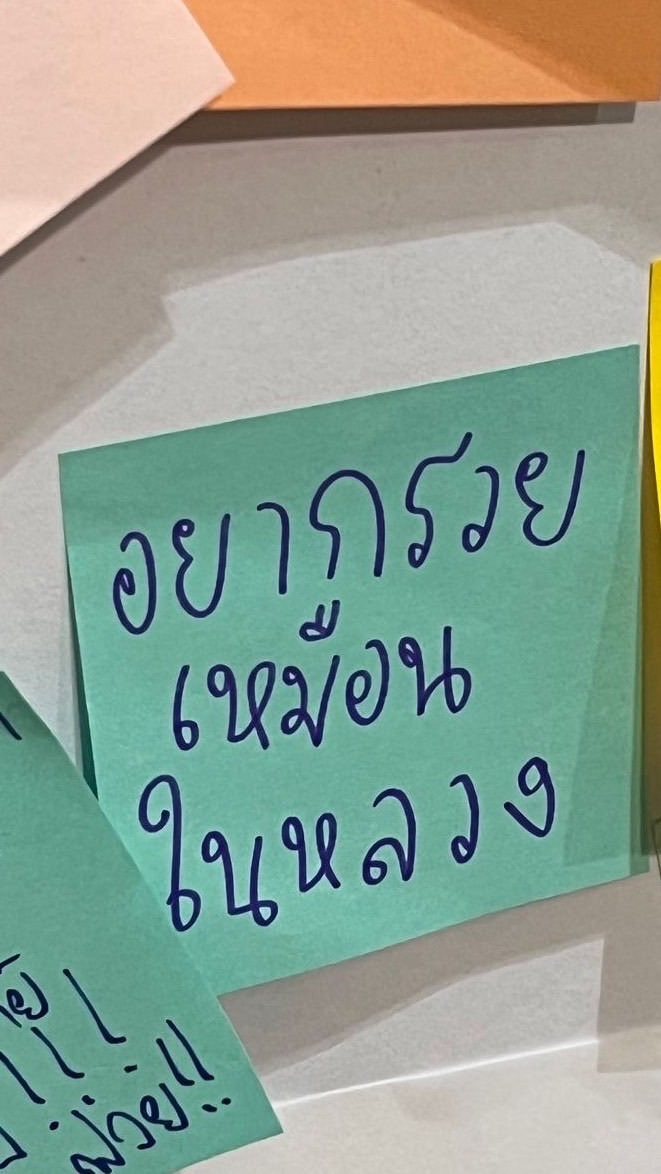 อยากรวย
เหมือน
ในหลวง